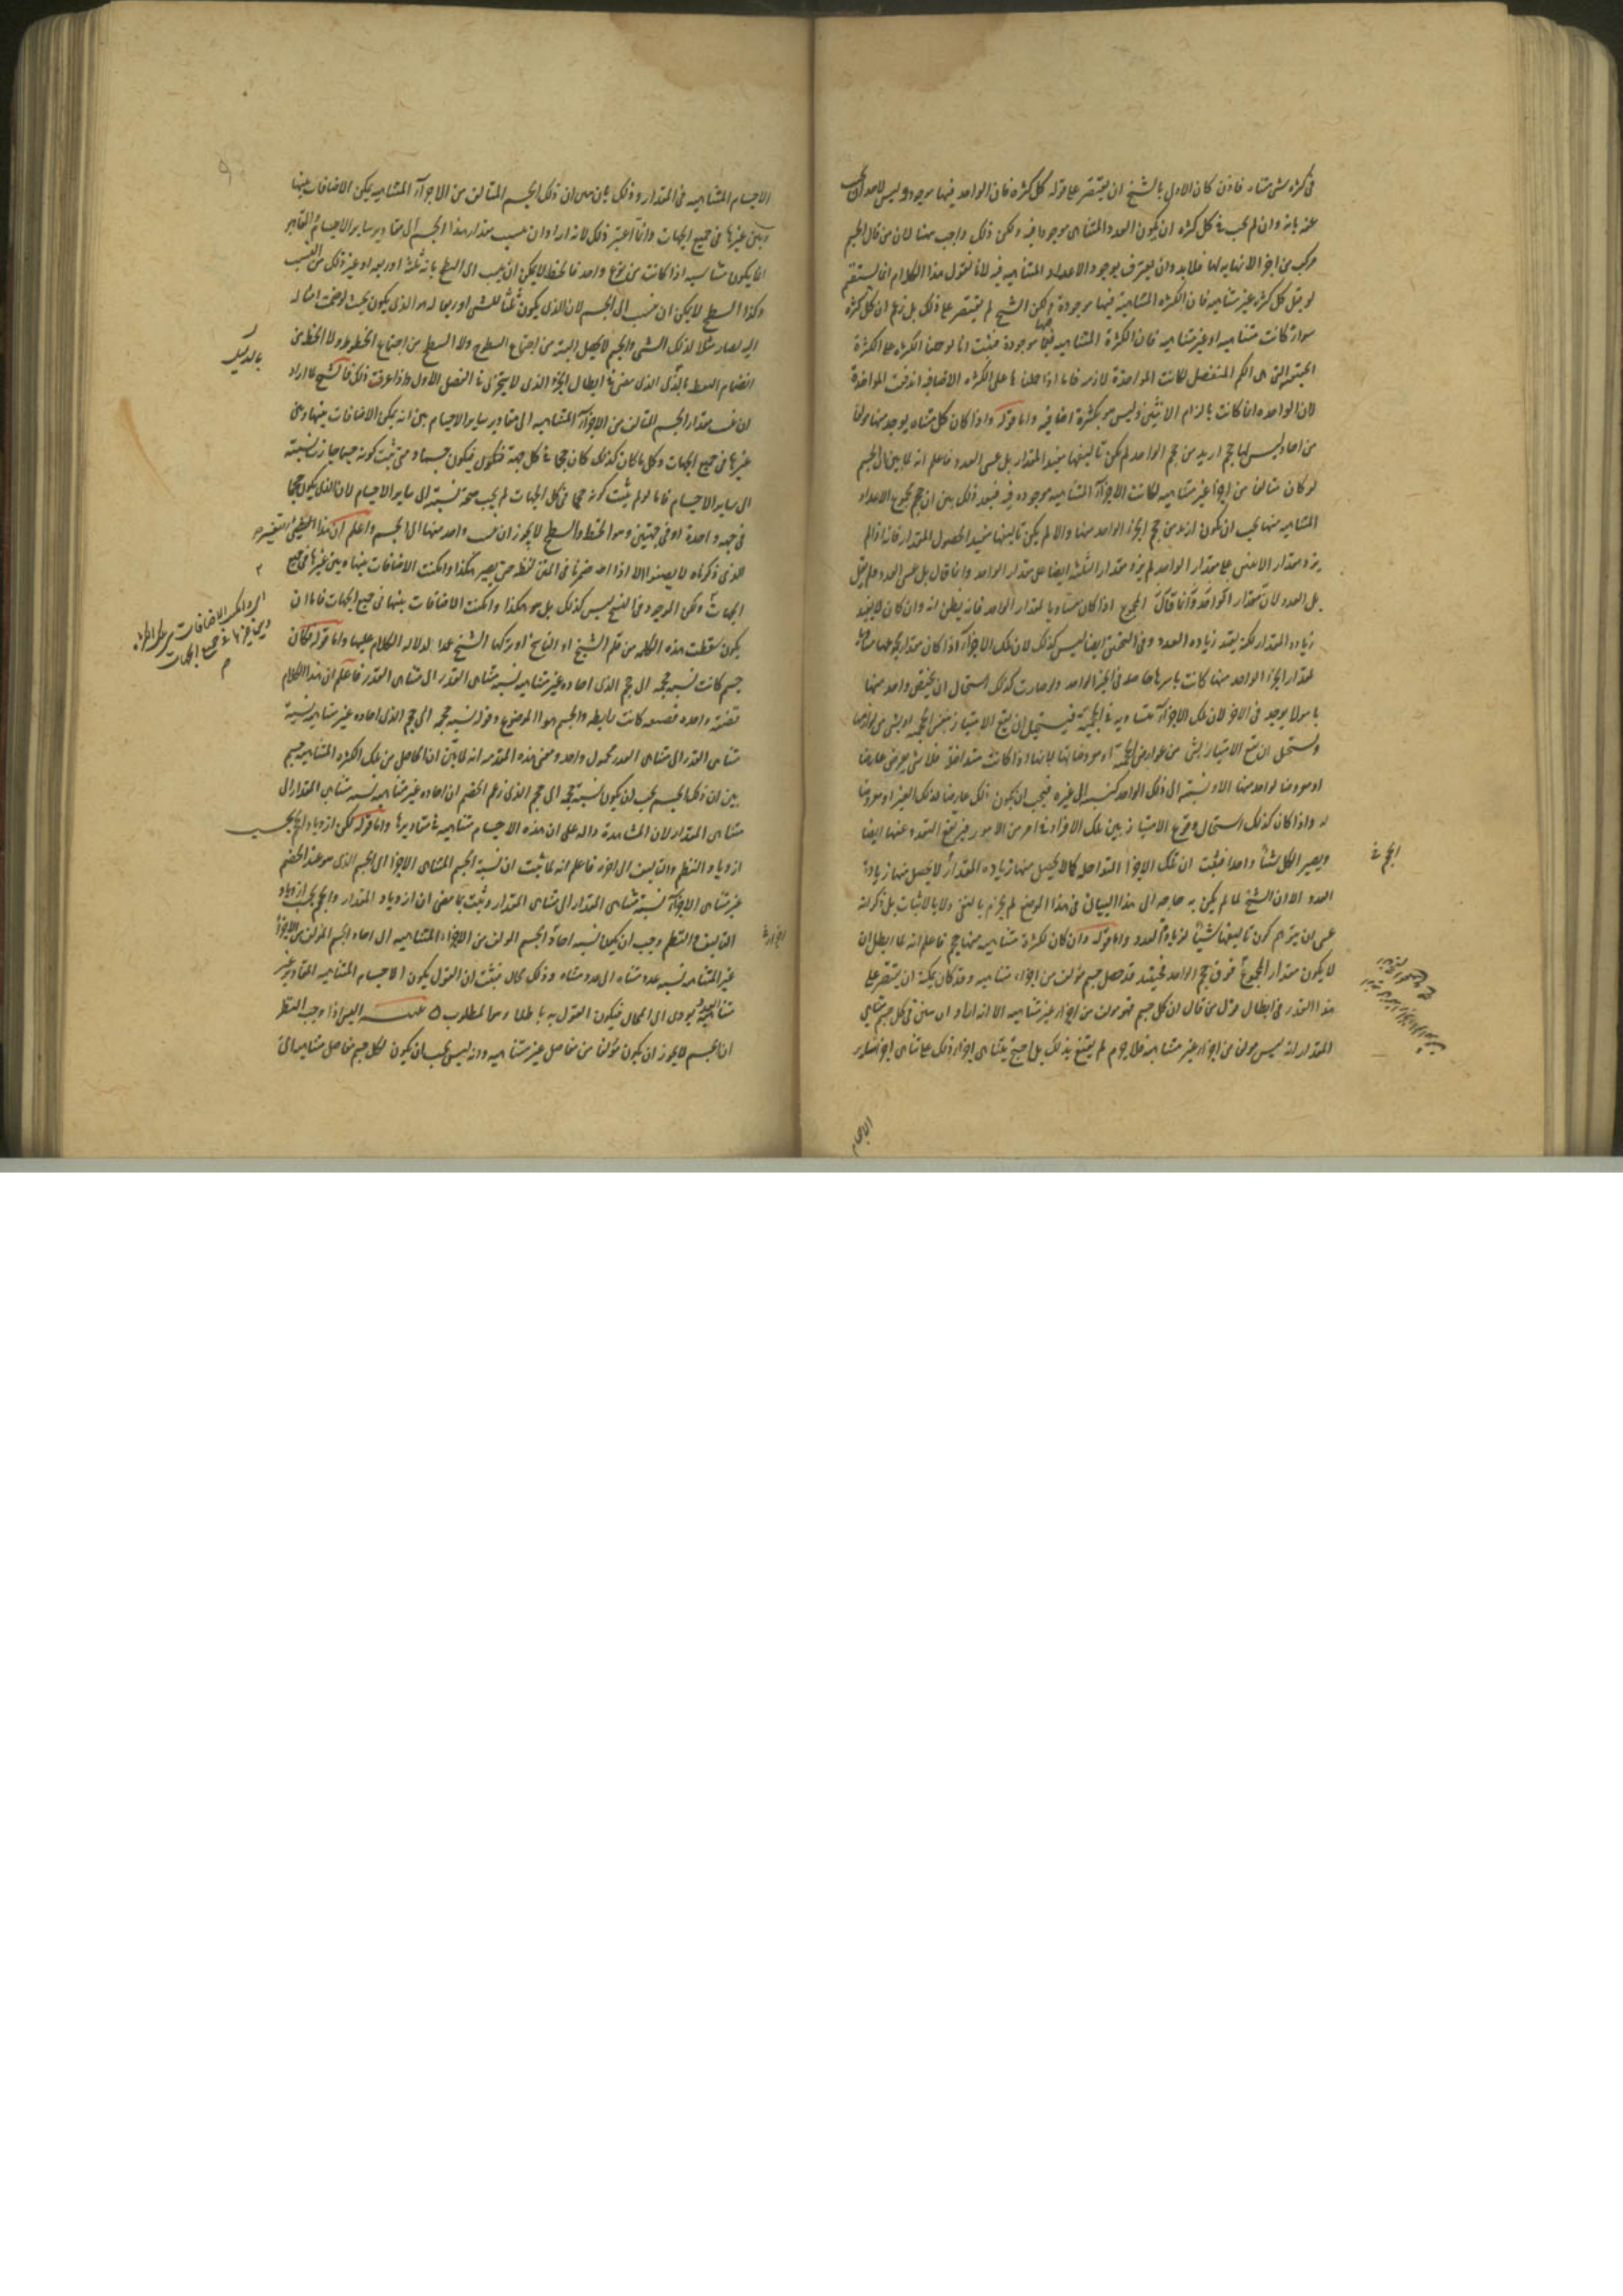 في كثرة شيء متناه فاذن كان الاولى بالشيخ ان يقتصر على قوله كل كثرة فان الواحد فيها موجود وليس لاحد ان
عنه بانه وان لم يجب في كل كثرة ان يكون العدد المتناهي موجودا فيه ولكن ذلك واجب ههنا لان من قال الجسم
مركب من اجزا لا نهاية لها فلا بد وان يعترف بوجود الاعداد المتناهية فيه لانا نقول هذا الكلام انما يستقيم
لو قيل كل كثرة غير متناهية فان الكثرة المتناهية فيها موجودة ولكن الشيخ لم يقتصر على ذلك بل زعم ان كل كثرة
سواء كانت متناهية او غير متناهية فان الكثرة المتناهية فيها موجودة فثبت انا لو حملنا الكثرة على الكثرة
الحقيقية التي هي الكم المنفصل لكانت المواخذة لازمة فاما اذا حملناها على الكثرة الاضافية اندفعت المواخذة
لان المواخذة انما كانت بالزام الاثنين وليس هو بكثرة اضافية واما قوله واذا كان كل متناه يوجد منها مولفا
من احاد ليس لها حجم ازيد من حجم الواحد لم يكن تاليفها مفيدا للمقدار بل عسى العدد فاعلم انه لما بين ان الجسم
لو كان متالفا من اجزا غير متناهية لكانت الاجزاء المتناهية موجودة فيه فبعد ذلك بين ان حجم مجموع الاعداد
المتناهية منها يجب ان يكون ازيد من حجم الجزء الواحد منها والا لم يكن تاليفها مفيدا لحصول المقدار فانه اذا لم
يزد مقدار الاثنين على مقدار الواحد لم يزد مقدار الثلثة ايضا على مقدار الواحد وانما قال بل عسى العدد ولم يقل
بل العدد لان مقدار الواحد وانما قال المجموع اذا كان مساويا لمقدار الواحد فانه يظن انه وان كان لا يفيد
زيادة المقدار لكنه يفيد زيادة العدد وفي التحقيق ايضا ليس كذلك لان تلك الاجزاء اذا كان مقدار مجموعها مساويا
لمقدار الجزء الواحد منها كانت باسرها حاصلة في الحيز الواحد ولو صارت كذلك استحال ان يختص واحد منها
بامر لا يوجد في الاخر لان تلك الاجزاء متساوية في الحجمية فيستحيل ان يقع الامتياز بنفس الحجمية او بشي من لوازمها
ويستحيل ان يقع الامتياز بشي من عوارض الحجمية او معروضاتها لانها اذا كانت متداخلة فلا شي يعرض عارضا
او معروضا لواحد منها الا ونسبته الى ذلك الواحد كنسبته الى غيره فيجب ان يكون ذلك عارضا لذلك الغير او معروضا
له واذا كان كذلك استحال وقوع الامتياز بين تلك الافراد في امر من الامور فيرتفع التعدد عنها ايضا
ويصير الكل شيئا واحدا فثبت ان تلك الاجزا المتداخلة كما لا يحصل منها زيادة المقدار لا يحصل منها زيادة
العدد الا ان الشيخ لما لم يكن به حاجة الى هذا البيان في هذا الموضع لم يجزم بالنفي ولا بالاثبات بل ذكر انه
عسى ان يتوهم كون تاليفها شيئا لزيادة العدد واما قوله وان كان لكثرة متناهية منها حجم فاعلم انه لما ابطل ان
لا يكون مقدار المجموع فوق حجم الواحد فحينئذ قد حصل جسم مؤلف من اجزاء متناهية وقد كان يمكنه ان يقتصر على
هذا القدر في ابطال قول من قال ان كل جسم فهو مولف من اجزاء غير متناهية الا انه اراد ان يبين في كل جسم متناهي
المقدار انه ليس مولفا من اجزاء غير متناهية فلا جرم لم يقنع بذلك بل احتج بتناهي اجزاء ذلك على تناهي اجزاء ساير
الحجم في
الاجسام
الاجسام المتناهية في المقدار وذلك بان بين ان ذلك الجسم المتالف من الاجزاء المتناهية يمكن الاضافات بينها
وبين غيرها في جميع الجهات وانما اعتبر ذلك لانه اراد ان ينسب مقدار هذا الجسم الى مقادير ساير الاجسام والمقادير
انما يكون متناسبة اذا كانت من نوع واحد فالخط لا يمكن ان ينسب الى السطح بانه ثلثه او ربعه او غير ذلك من النسب
وكذا السطح لا يمكن ان ينسب الى الجسم لان الذي يكون ثلثا للشي او ربعا له هو الذي يكون بحيث لو ضمت امثاله
اليه لصار مثلا لذلك الشي والجسم لا يحصل البتة من اجتماع السطوح ولا السطح من اجتماع الخطوط ولا الخط من
انضمام النقط بالذي مضى في ابطال الجزء الذي لا يتجزى في الفصل الاول واذا عرفت ذلك فالشيخ لما اراد
ان ينسب مقدار الجسم المتالف من الاجزاء المتناهية الى مقادير ساير الاجسام بين انه يمكن الاضافات بينها وبين
غيرها في جميع الجهات وكل ما كان كذلك كان حجما في كل جهة فيكون جسما ومتى ثبت كونه جسما جاز نسبته
الى ساير الاجسام فاما لو لم يثبت كونه حجما في كل الجهات لم يجب صحة نسبته الى ساير الاجسام لان الذي يكون حجما
في جهة واحدة او في جهتين وهو الخط والسطح لا يجوز ان ينسب واحد منهما الى الجسم واعلم ان هذا
الذي ذكرناه لا يصفوا الا اذا اضمرنا في المتن لفظه حتى يصير هكذا وامكنت الاضافات بينها وبين غيرها في جميع
الجهات ولكن الموجود في النسخ ليس كذلك بل هو هكذا وامكنت الاضافات بينها في جميع الجهات فاما ان
يكون سقطت هذه الكلمة من قلم الشيخ او الناسخ او تركها الشيخ عمدا لدلالة الكلام عليها واما قوله فكان
جسم كانت نسبة حجمه الى حجم الذي احاده غير متناهية نسبة متناهي القدر الى متناهي القدر فاعلم ان هذا الكلام
قضية واحدة فقوله كانت رابطة والجسم هو الموضوع وقوله نسبة حجمه الى حجم الذي احاده غير متناهية نسبة
متناهي القدر الى متناهي القدر محمول واحد ومعنى هذه المقدمة انه لما بين ان الحاصل من تلك الكثرة المتناهية جسم
بين ان ذلك الجسم يجب ان يكون نسبة حجمه الى حجم الذي زعم الخصم ان احاده غير متناهية نسبة متناهي المقدار الى
متناهي المقدار لان المشاهدة دالة على ان هذه الاجسام متناهية في مقاديرها واما قوله لكن ازدياد الحجم بحسب
ازدياد النظم والتاليف الى اخره فاعلم انه لما ثبت ان نسبة الجسم المتناهي الاجزا الى الجسم الذي هو عند الخصم
غير متناهي الاجزاء نسبة متناهي المقدار الى متناهي المقدار وثبت بما مضى ان ازدياد المقدار والحجم بحسب ازدياد
التاليف والنظم وجب ان يكون نسبة احاد الجسم المولف من الاجزاء المتناهية الى احاد الجسم المولف من الاجزاء
غير المتناهية نسبة عدد متناه الى عدد متناه وذلك محال فثبت ان القول بكون الاجسام المتناهية المقادير غير
متناهية يؤدي الى المحال فيكون القول به باطلا وهو المطلوب ه تنبيه اليس اذا اوجب النظر
ان الجسم لا يجوز ان يكون مؤلفا من مفاصل غير متناهية وانه ليس يجب ان يكون لكل جسم مفاصل متناهية الى
اجزاء